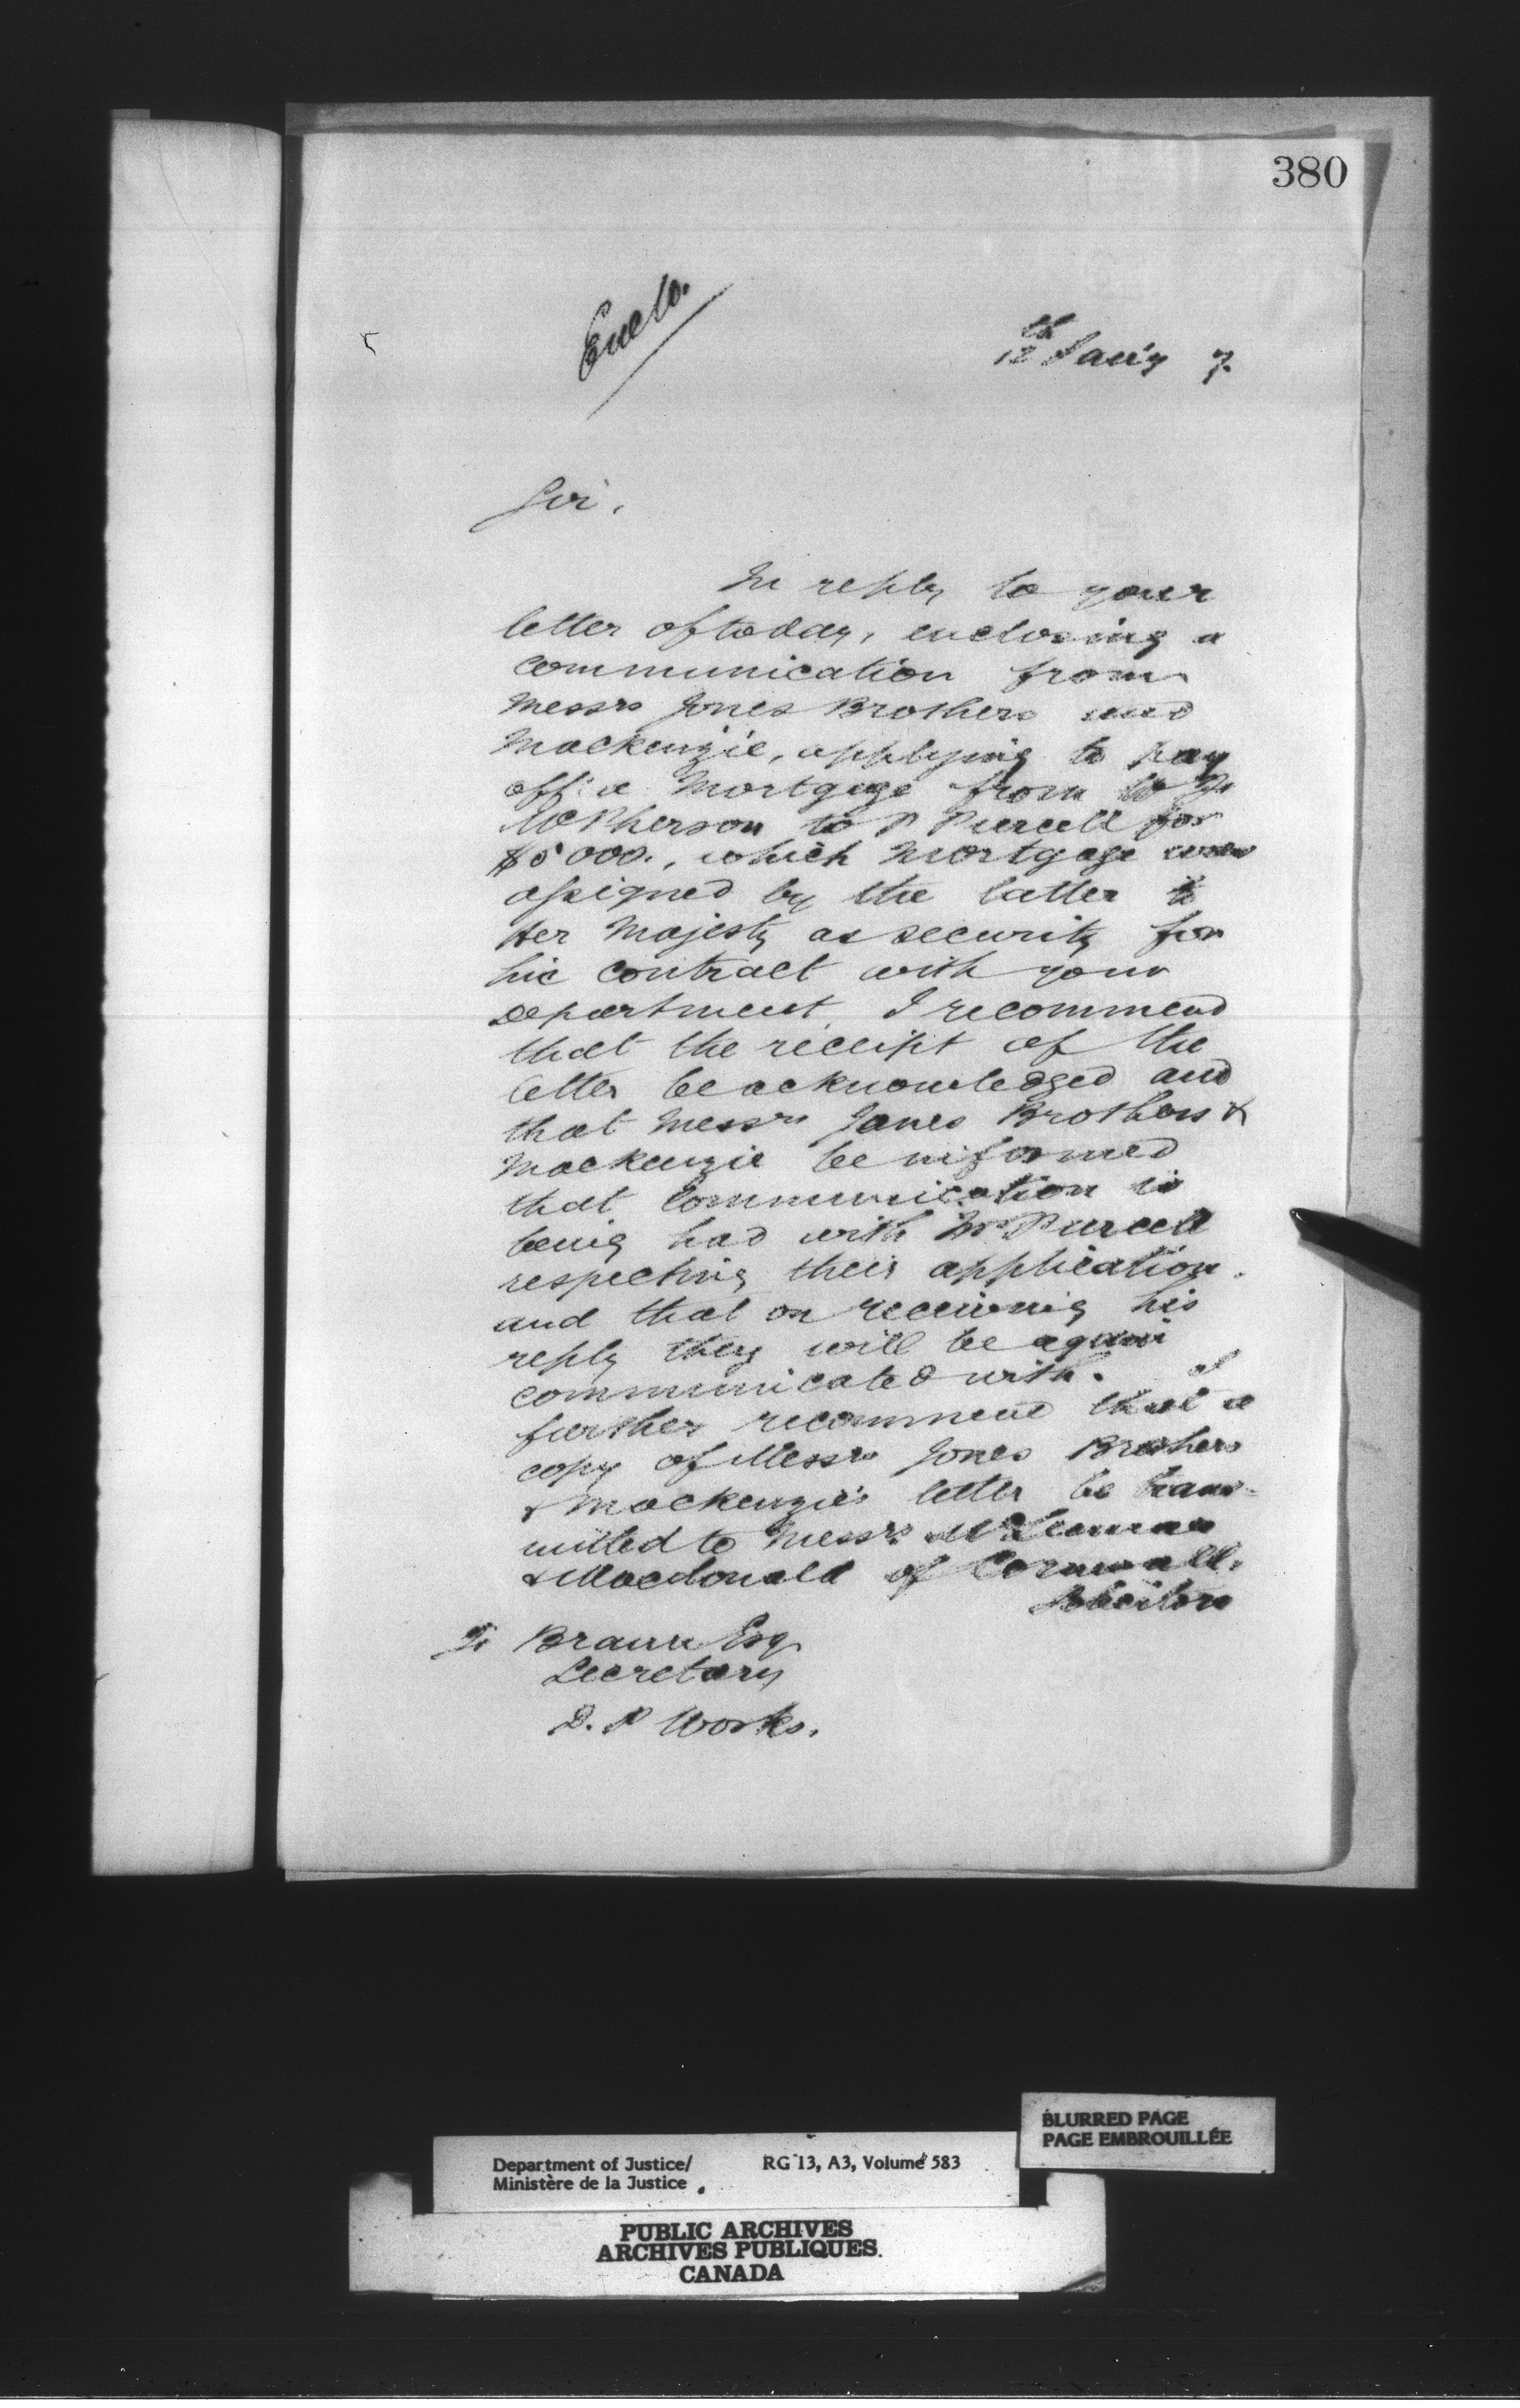 380
Enclo.
12th Jan'y 7.
Sir,
In reply to your
letter of today, enclosing a
communication from
Messrs Jones Brothers and
Mackenzie, applying to pay
off a Mortgage from
McPherson to P Purcell for
$5000., which Mortgage was
assigned by the latter to
Her Majesty as security for
his contract with your
Department, I recommend
that the receipt of the
letter be acknowledged and
that Messrs Jones Brothers &
Mackenzie be informed
that communication is
being had with Mr Purcell
respecting their application.
and that on receiving his
reply they will be again
communicated with. I
further recommend that a
copy of Messrs Jones Brothers
& Mackenzie's letter be trans-
mitted to Messrs McLennan
& Macdonald of Cornwall,
Solicitors
F. Braun Esq
Secretary
D. P Works.
BLURRED PAGE
PAGE EMBROUILLÉE
Department of Justice/ RG 13, A3, Volume 583
Ministère de la Justice
PUBLIC ARCHIVES
ARCHIVES PUBLIQUES
CANADA